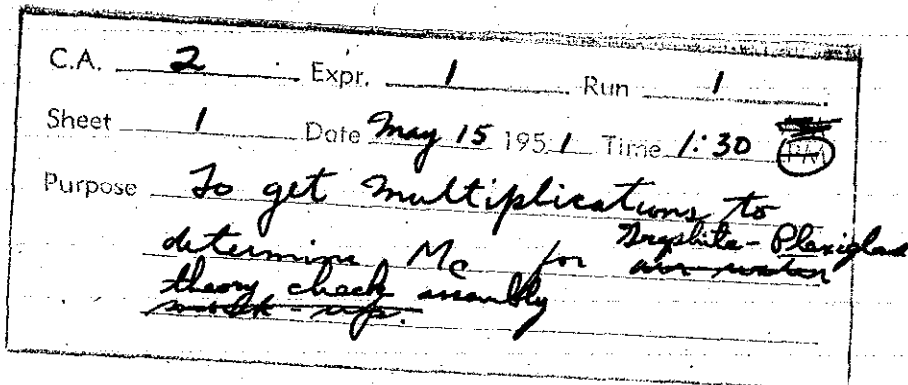 C.A. 2 Expr. 1 Run 1
Sheet 1 Date May 15 1951 Time 1:30 PM
Purpose To get multiplications to
determine Mc for Graphite-Plexiglas
theory check assembly